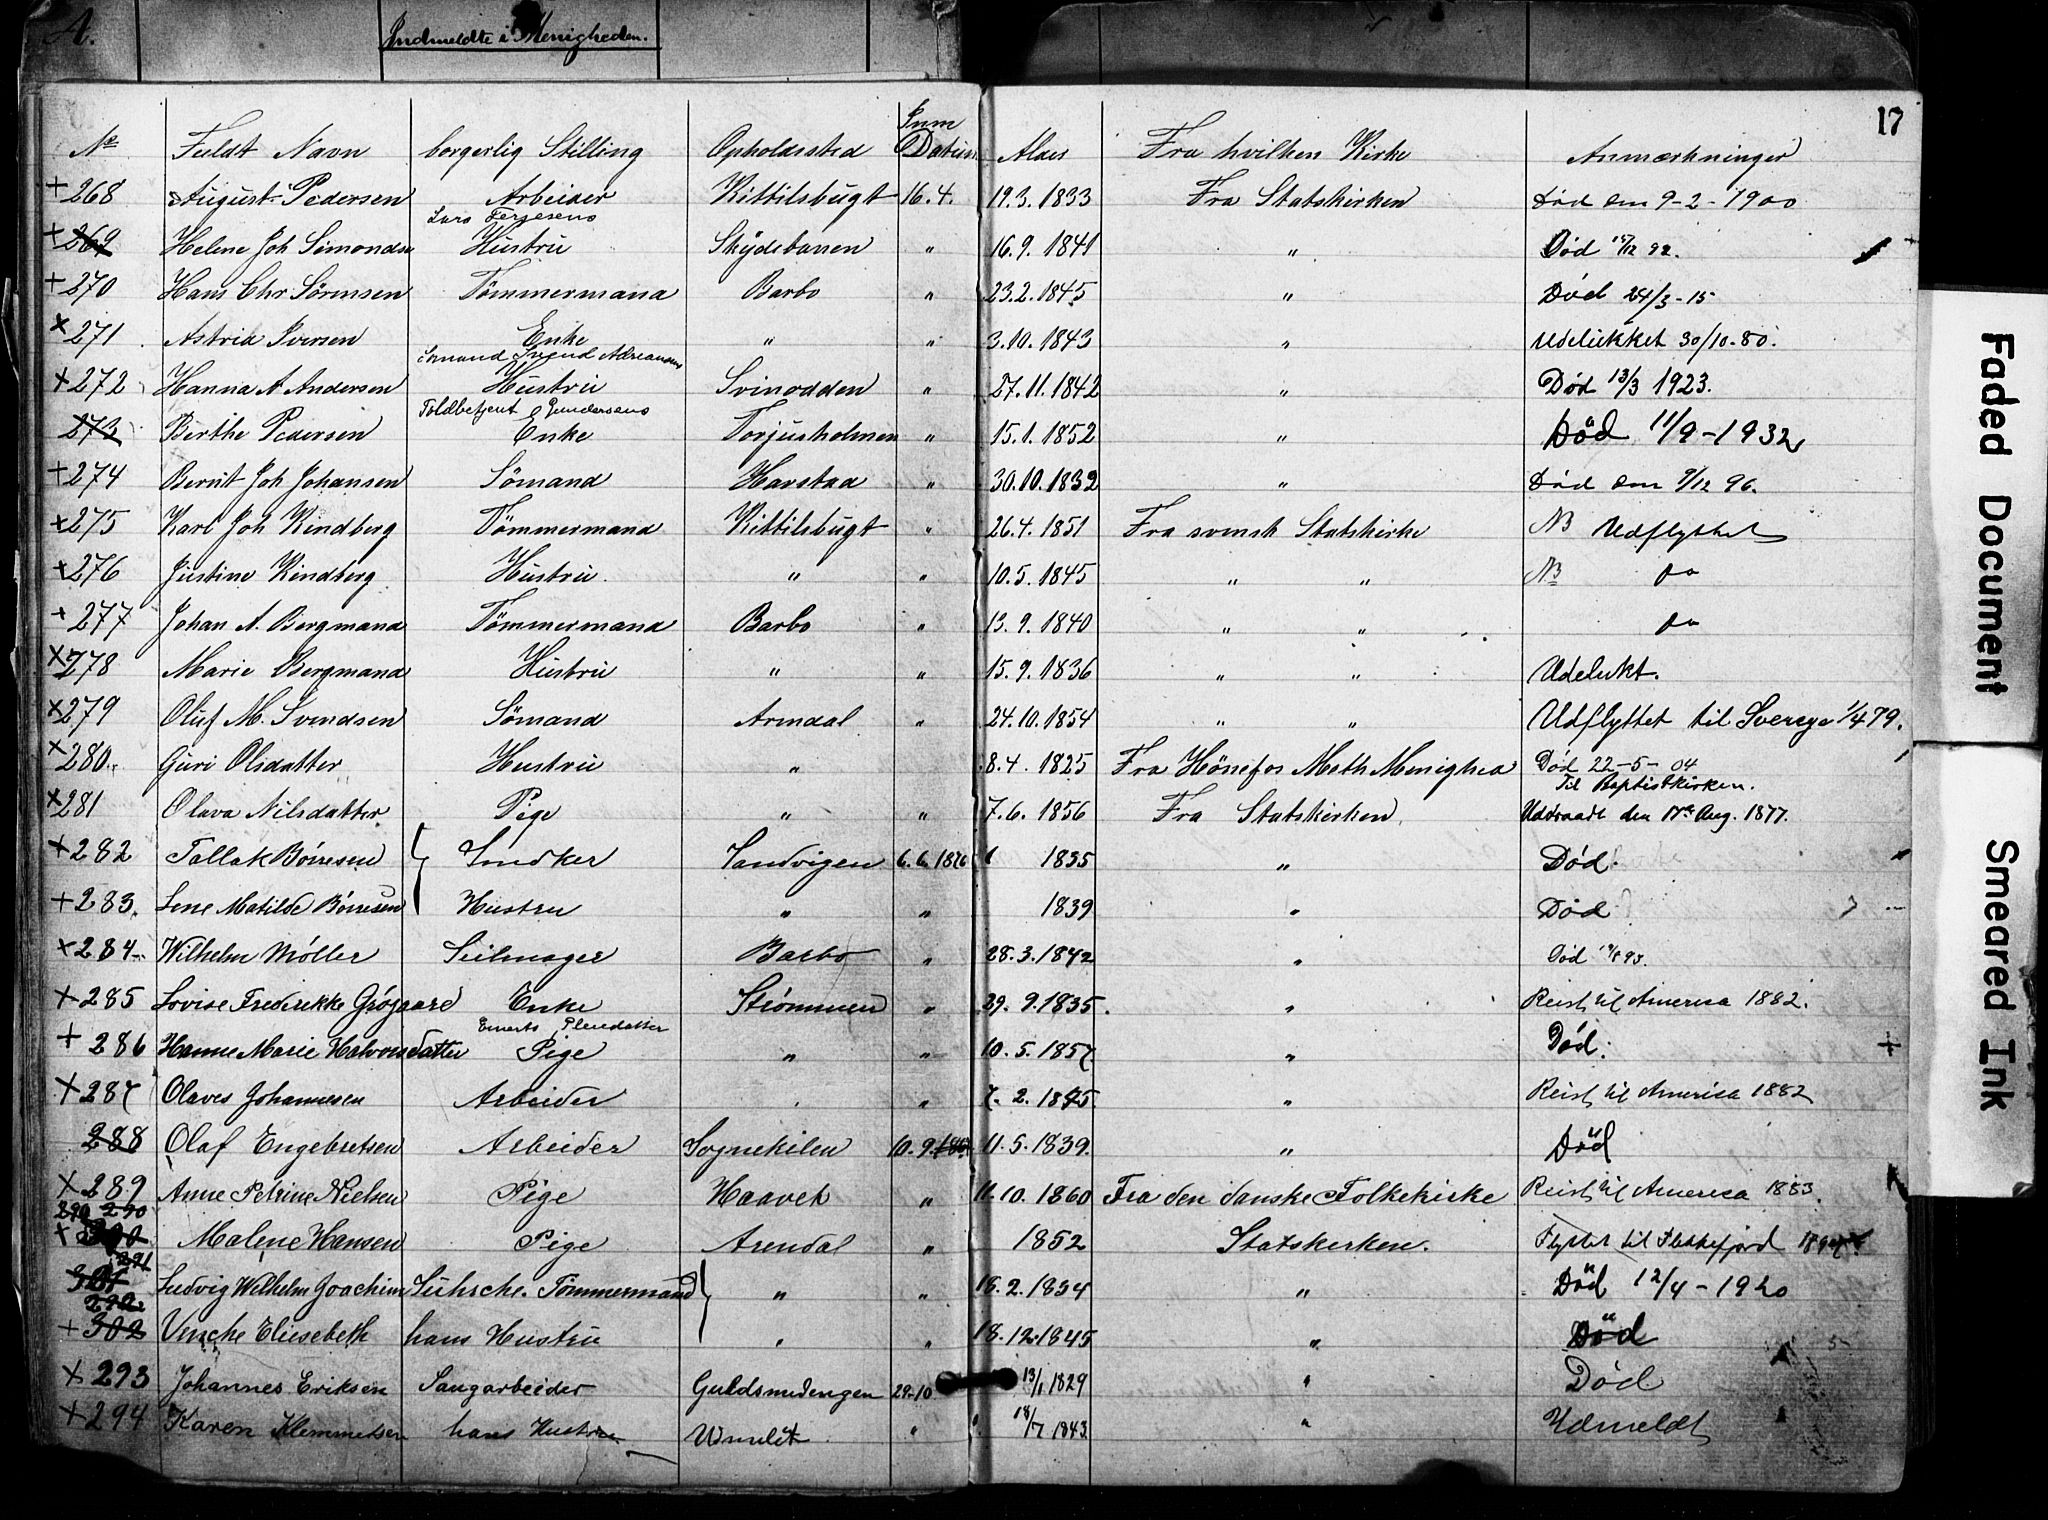 A. Indmeldte i Menigheden.
17
No Fuldt Navn borgerlig Stilling Opholdssted Inm Datum Alder Fra hvilken Kirke Anmærkninger
+268 August Pedersen Arbeider Kittilsbugt 16.4. 19.3.1833 Fra Statskirken Død den 9-2-1900
Lars Terjesens
+269 Helene Joh Simondsn Hustru Skydebanen " 16.9.1841 " Død 12 92.
+270 Hans Chr Sörensen Tömmermand Barbo " 23.2.1845 " Død 24/3-15
x271 Astrid Iversen Enke " " 3.10.1843 " Udelukket 30/10-80.
Sömand Svend Adreansens
+272 Hanna A Andersen Hustru Svinodden " 27.11.1842 " Död 13/3 1923.
Toldbetjent Gundersens
273 Berthe Pedersen Enke Torjusholmen " 15.1.1852 " Död 11/9-1932
+274 Bernt Joh Johansen Sömand Havstad " 30.10.1832 " Død den 9/12 96.
x275 Karl Joh Kindberg Tömmermand Kittilsbugt " 26.4.1851 Fra svensk Statskirke NB Udflyttet
x276 Justine Kindberg Hustru. " " 10.5.1845 " " NB do
+277 Johan A. Bergmand Tömmermand Barbo " 13.9.1840 " " do
x278 Marie Bergmand Hustru " " 15.9.1836 " " Udelukt.
x279 Oluf M. Svendsen Sömand Arendal " 24.10.1854 " " Udflyttet til Sverge 1/4 79.
x280 Guri Olsdatter Hustru " 8.4.1825 Fra Hönefos Meth Menighed Död 22-5-04
Til Baptistkirken.
x281 Olava Nilsdatter Pige " " 7.6.1856 Fra Statskirken Uddraadt den 17de Aug. 1877.
+282 Tallak Börresen Snedker Sandvigen 6.6.1876 1835 " Død.
+283. Lene Matilde Börresen Hustru " " 1839 " Død
x284 Wilhelm Møller Seilmager Barbo " 28.3.1842 " Død 93.
+285 Lovise Frederikke Grøgaard Enke Strømmen " 29.9.1835. " Reist til Amerika 1882.
+286 Hanne Marie Halvorsdatter Pige " " 10.5.1857 " Død.
+287 Olaves Johannesen Arbeider " 7.2.1875. " Reist til Amerika 1882
288 Olaf Engebretsen Arbeider Sognekilen 10.9. 11.5.1839. " Död
x289 Anne Petrine Nielsen Pige Haavet " 11.10.1860 Fra den danske Folkekirke Reist til Amerika 1883.
290 290
+300 Malene Hansen Pige Arendal " 1852 Statskerken. Flyttet til Flekkefjord
291
301 Ludvig Wilhelm Joachim Sühsche. Tömmermand " " 18.2.1834 " Död 12/4-1920
292
+302 Vincke Eliesebeth hans Hustru " " 18.12.1845 " Död
x293 Johannes Eriksen Saugarbeider Guldsmedengen 29-10 13/1 1829 " Död
+294 Karen Klemmetsen hans Hustru " 18/7 1843 " Udmeldt
Faded Document
Smeared Ink